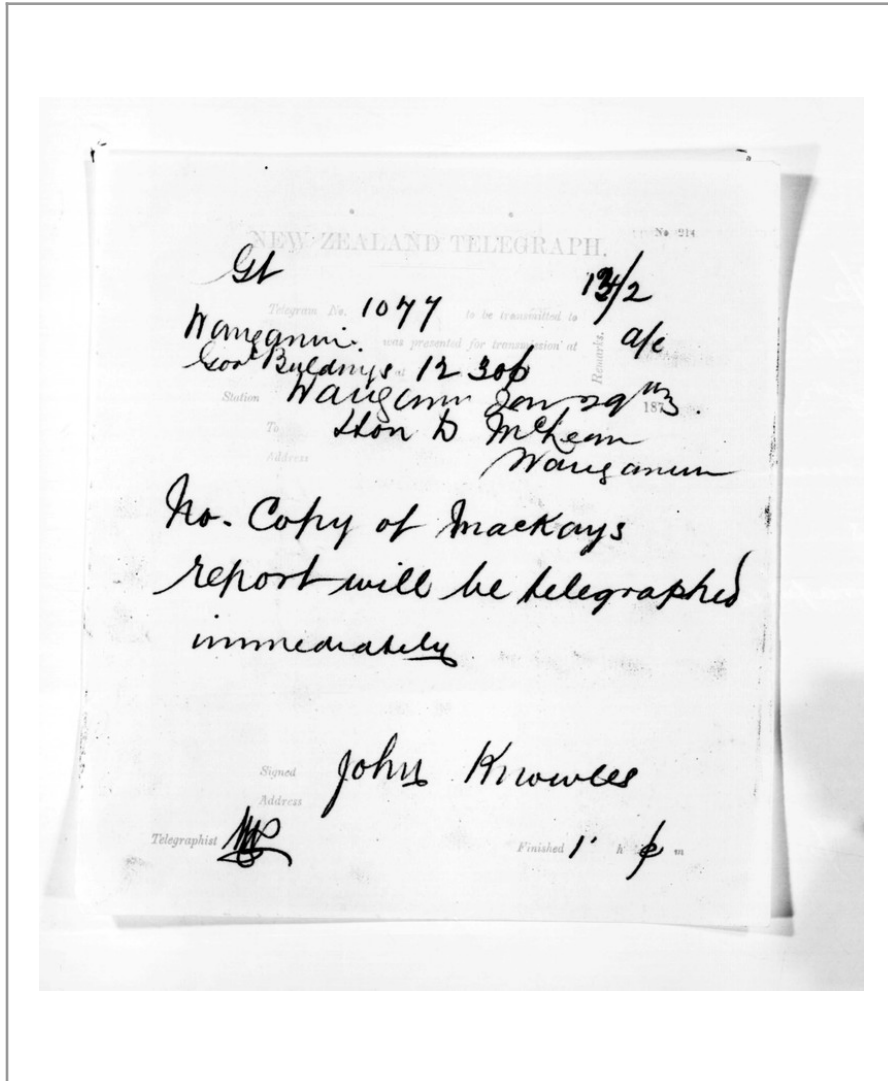 No 214
NEW ZEALAND TELEGRAPH.
Gt
Telegram No. 1077 to be transmitted to
Wanganui. was presented for transmission at
Remarks. a/c
Govt Buldngs 12 30p
Station Wanganui Jan 29th 1873.
To Hon D McLean
Address Wanganui
No. Copy of Mackays
report will be telegraphed
immediately
Signed John Knowles
Address
Telegraphist
Finished 1 h p m